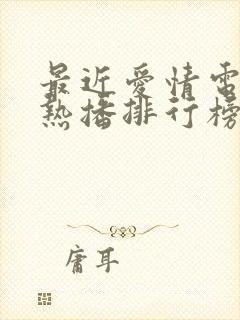 最近爱情電
热播排行榜
庸耳